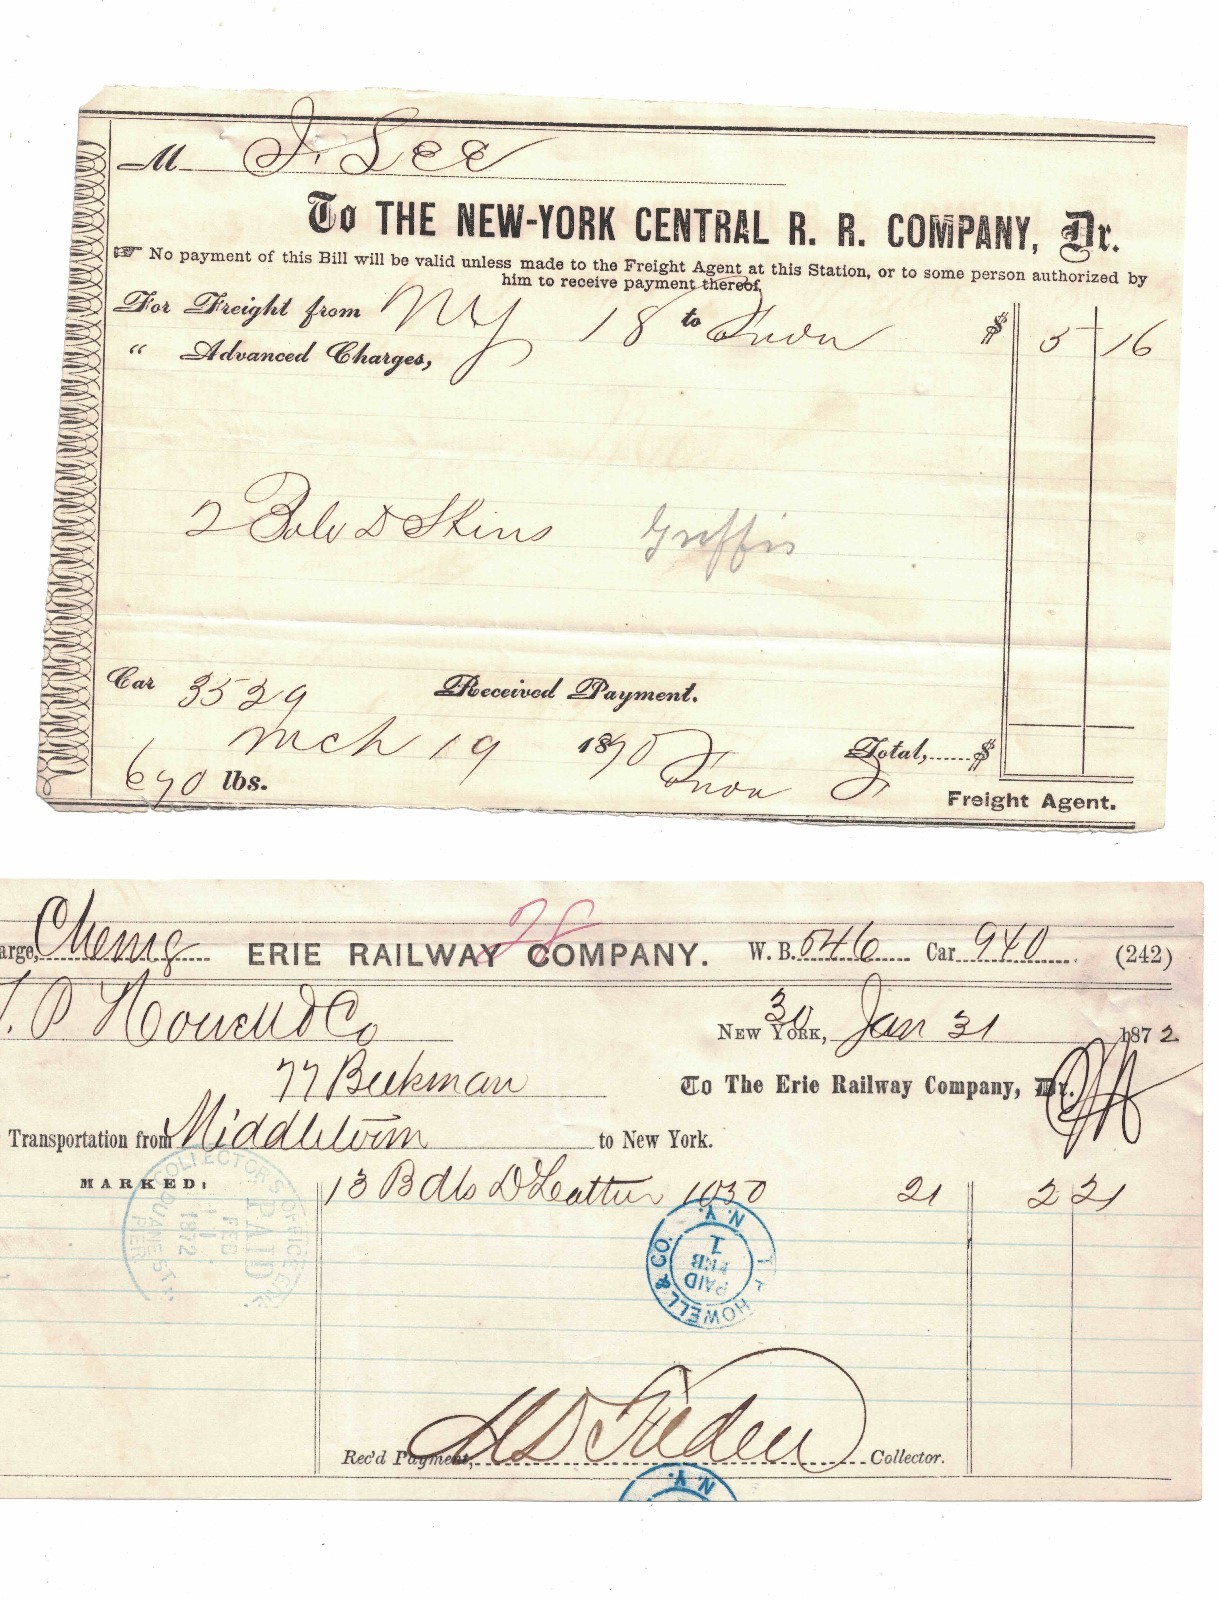 M J. Lee
To THE NEW-YORK CENTRAL R. R. COMPANY, Dr.
☞ No payment of this Bill will be valid unless made to the Freight Agent at this Station, or to some person authorized by
him to receive payment thereof.
For Freight from NY 18 to $ 5 16
“ Advanced Charges,
2 D Skins Griffis
Car 3529 Received Payment.
Mch 19 1870 Total, $
690 lbs.
Freight Agent.
arge, Chemg ERIE RAILWAY COMPANY. W. B. 546 Car 940 (242)
28
T. P Howell & Co
30
NEW YORK, Jan 31 1872
77 Beekman To The Erie Railway Company, Dr.
Transportation from Middletown to New York.
MARKED: 13 Bdls D Leather 1050 21 2 21
COLLECTOR'S OFFICE
PAID
FEB
1
1872
DUANE ST.
PER
T. P. HOWELL & CO.
PAID
FEB
1
N.Y.
Rec'd Payment, Collector.
N.Y.